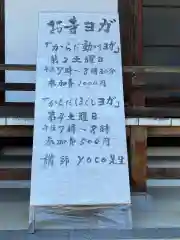 お寺ヨガ
「からだ動かすヨガ」
第2土曜日
午後7時〜8時30分
参加費1000円
「からだほぐしヨガ」
第4土曜日
午後7時〜8時
参加費500円
講師 yoco先生